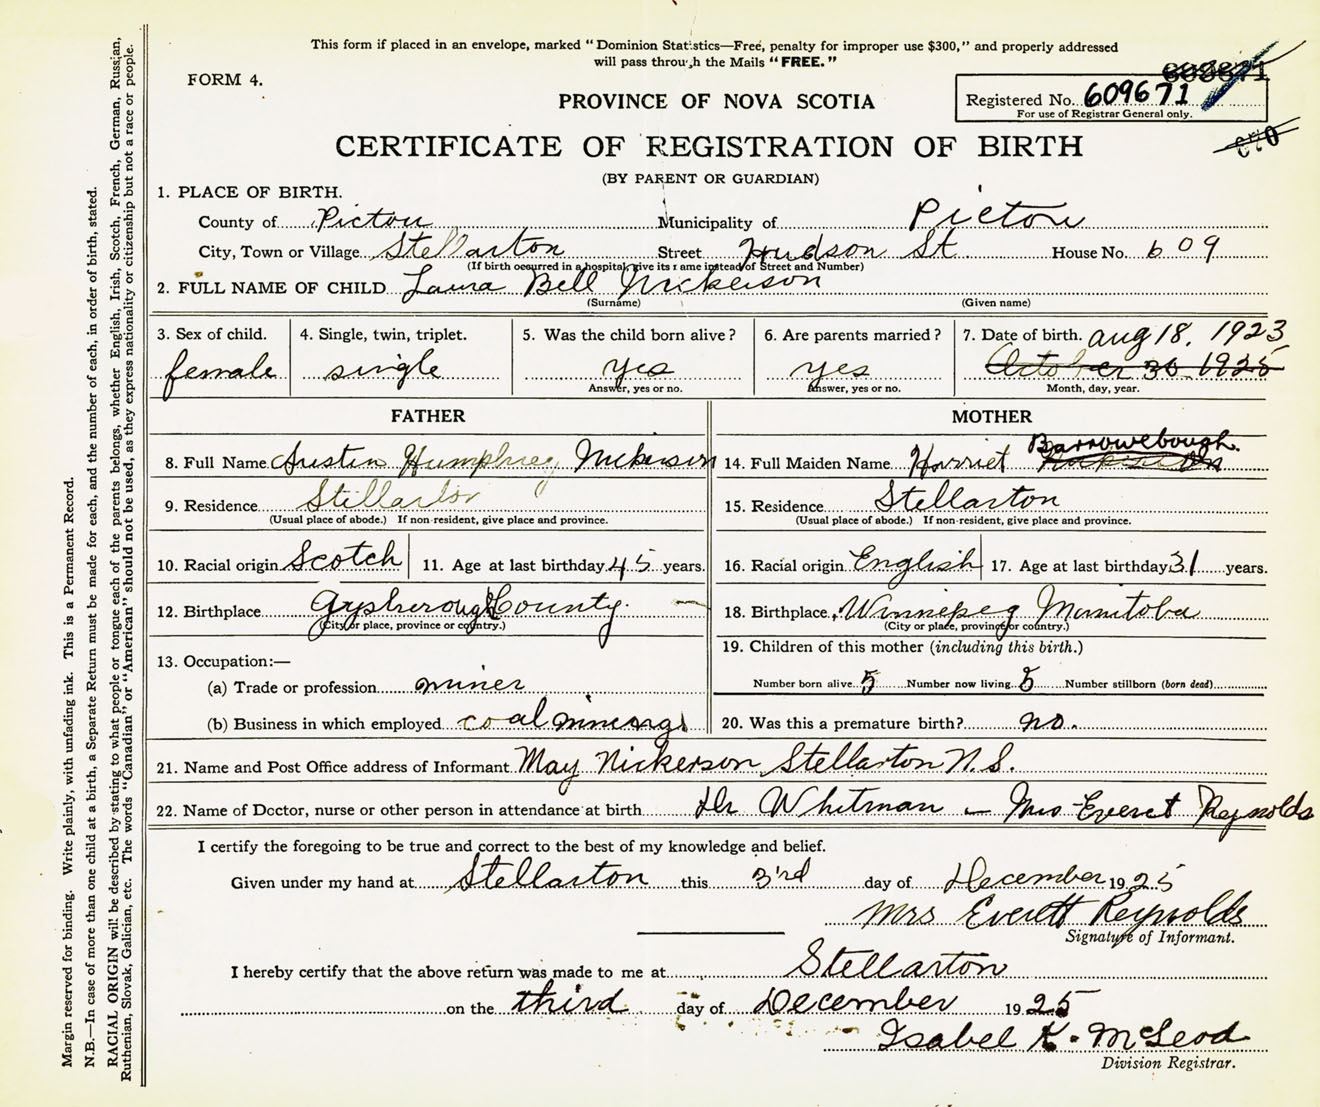 This form if placed in an envelope, marked "Dominion Statistics—Free, penalty for improper use $300," and properly addressed
will pass through the Mails "FREE."
FORM 4.
Registered No. 609671
For use of Registrar General only.
PROVINCE OF NOVA SCOTIA
CERTIFICATE OF REGISTRATION OF BIRTH
(BY PARENT OR GUARDIAN)
1. PLACE OF BIRTH.
County of Pictou Municipality of Pictou
City, Town or Village Stellarton Street Hudson St House No. 609
(If birth occurred in a hospital, give its name instead of Street and Number)
2. FULL NAME OF CHILD Laura Bell Nickerson
(Surname) (Given name)
3. Sex of child. 4. Single, twin, triplet. 5. Was the child born alive? 6. Are parents married? 7. Date of birth. Aug 18. 1923
female single yes yes October 30 1925
Answer, yes or no. Answer, yes or no. Month, day, year.
FATHER MOTHER
Barrowebough
8. Full Name Austin Humphrey Nickerson 14. Full Maiden Name Harriet
9. Residence Stellarton 15. Residence Stellarton
(Usual place of abode.) If non-resident, give place and province. (Usual place of abode.) If non-resident, give place and province.
10. Racial origin Scotch 11. Age at last birthday 45 years. 16. Racial origin English 17. Age at last birthday 31 years.
12. Birthplace Gysborough County 18. Birthplace Winnepeg Manitoba
(City or place, province or country.) (City or place, province or country.)
13. Occupation:— 19. Children of this mother (including this birth.)
(a) Trade or profession miner Number born alive 5 Number now living 5 Number stillborn (born dead)
(b) Business in which employed coal mining 20. Was this a premature birth? no.
21. Name and Post Office address of Informant May Nickerson Stellarton N.S.
22. Name of Doctor, nurse or other person in attendance at birth Dr Whitman — Mrs Everet Reynolds
I certify the foregoing to be true and correct to the best of my knowledge and belief.
Given under my hand at Stellarton this 3rd day of December 1925
Mrs Everett Reynolds
Signature of Informant.
I hereby certify that the above return was made to me at Stellarton
on the third day of December 1925
Isabel K. McLeod
Division Registrar.
Margin reserved for binding. Write plainly, with unfading ink. This is a Permanent Record.
N.B.—In case of more than one child at a birth, a Separate Return must be made for each, and the number of each, in order of birth, stated.
RACIAL ORIGIN will be described by stating to what people or tongue each of the parents belongs, whether English, Irish, Scotch, French, German, Russian,
Ruthenian, Slovak, Galician, etc. The words "Canadian" or "American" should not be used, as they express nationality or citizenship but not a race or people.